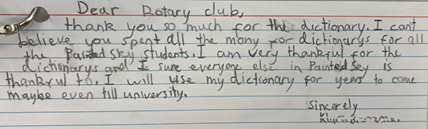 Dear Rotary club,
thank you so much for the dictionary. I can't
believe you spent all the mony for dictionarys for all
the Painted Sky students. I am very thankful for the
dictionarys and I sure everyone else in Painted Sky is
thankful to. I will use my dictionary for years to come
maybe even till university.
Sincerely